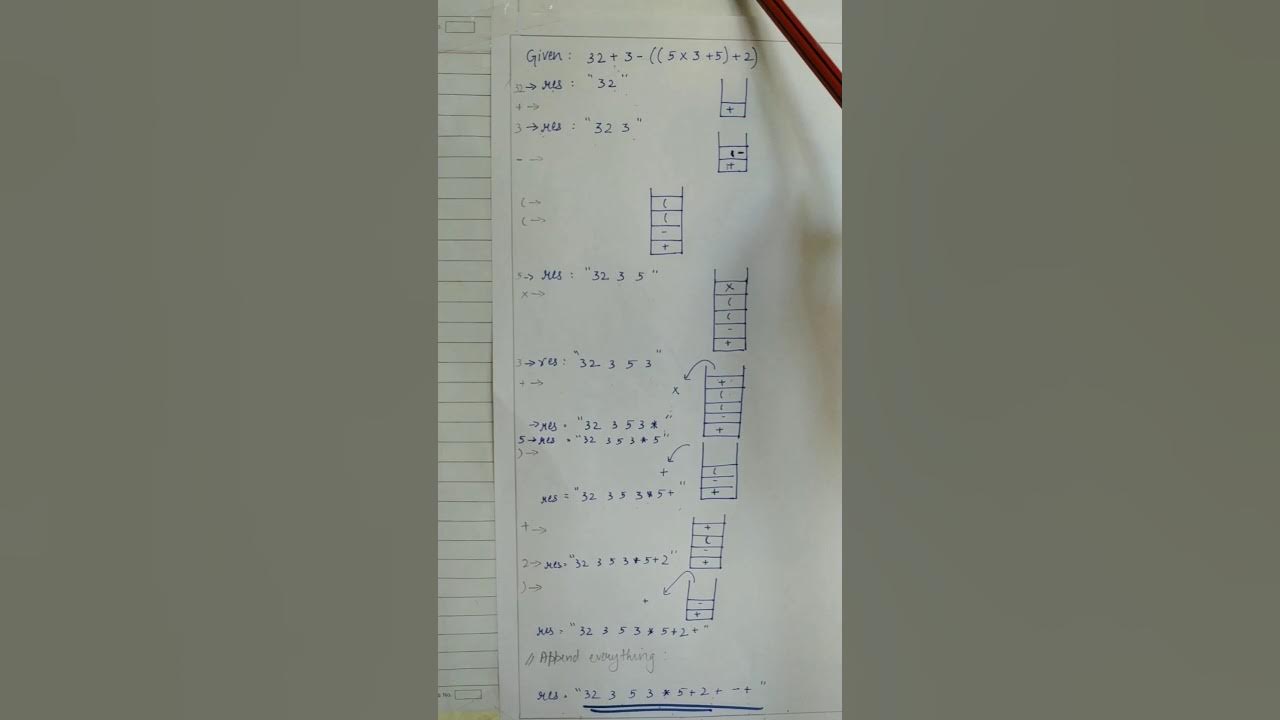 Given: 32 + 3 - ((5 × 3 + 5) + 2)
32 → res : "32"
+ →
+
3 → res : "32 3"
- →
-
+
( →
( →
(
(
-
+
5 → res : "32 3 5"
× →
×
(
(
-
+
3 → res : "32 3 5 3"
+ →
×
+
(
(
-
+
→ res = "32 3 5 3 *"
5 → res = "32 3 5 3 * 5"
) →
+
(
-
+
res = "32 3 5 3 * 5 +"
+ →
+
(
-
+
2 → res = "32 3 5 3 * 5 + 2"
) →
+
-
+
res = "32 3 5 3 * 5 + 2 +"
// Append everything :
res = "32 3 5 3 * 5 + 2 + - + "